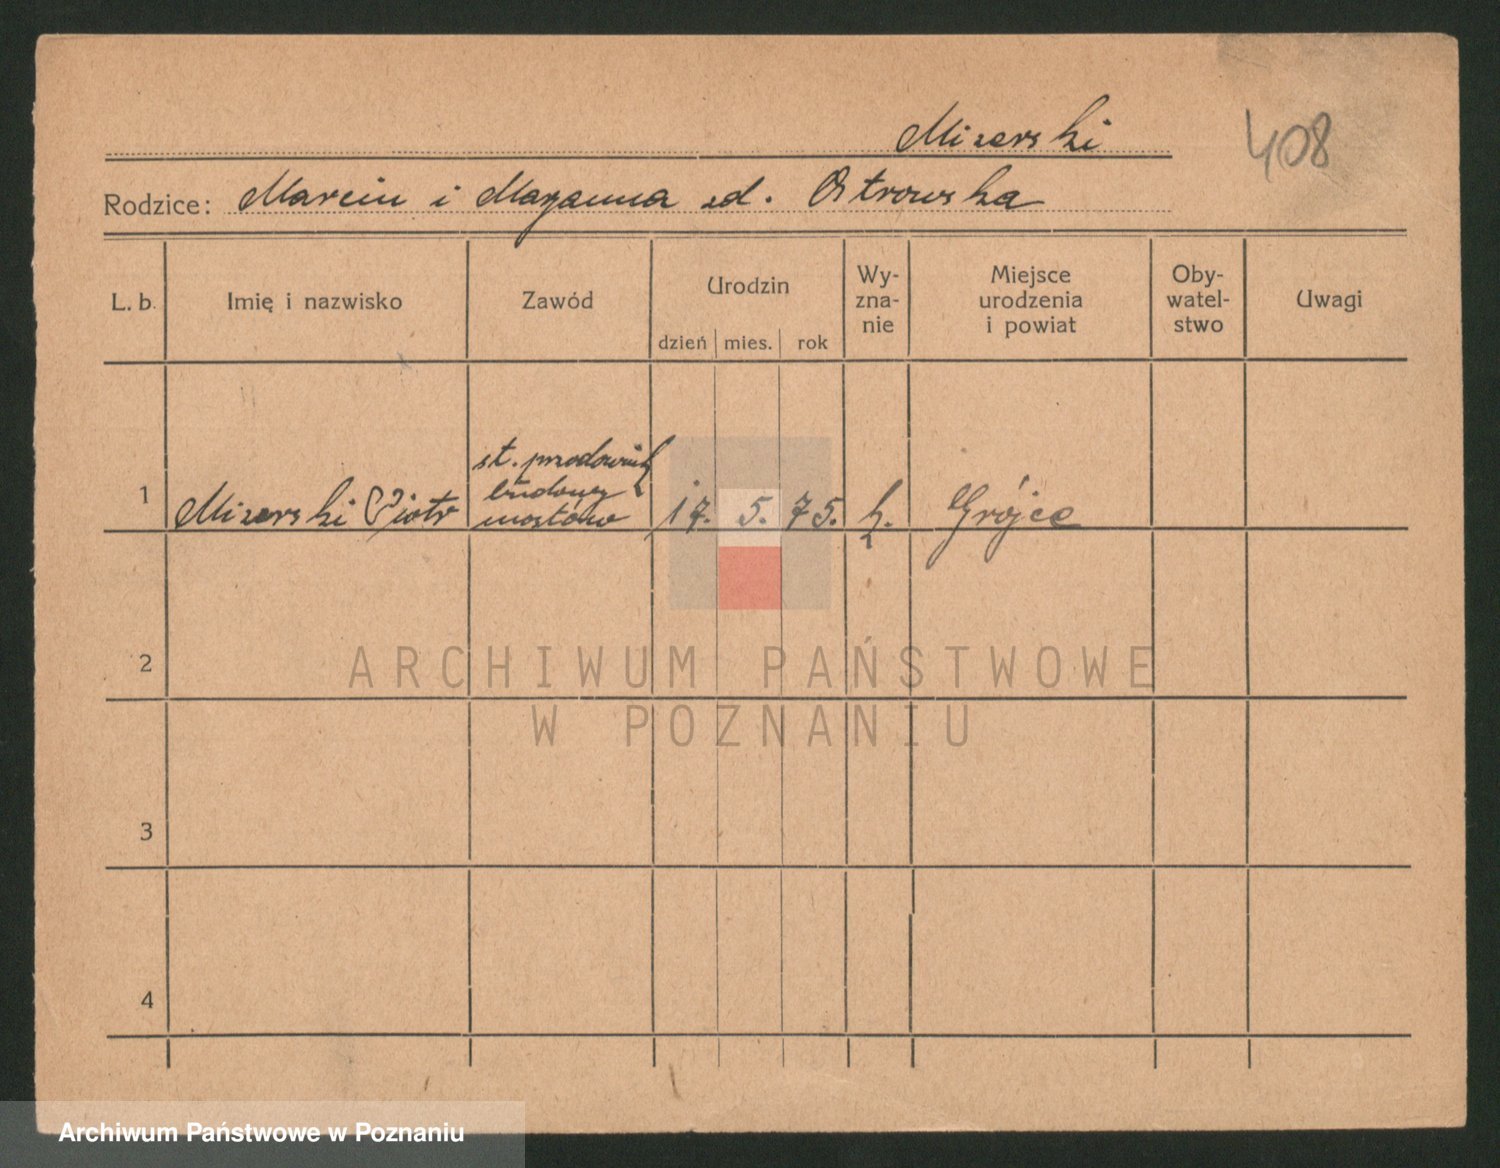 Mizerski
408
Rodzice: Marcin i Maryanna zd. Ostrowska
L. b.
Imię i nazwisko
Zawód
Urodzin
dzień mies. rok
Wy-
zna-
nie
Miejsce
urodzenia
i powiat
Oby-
watel-
stwo
Uwagi
1
Mizerski Piotr
st. przodownik
budowy
mostów
17. 5. 75.
k.
Grójec
2
3
4
ARCHIWUM PAŃSTWOWE
W POZNANIU
Archiwum Państwowe w Poznaniu